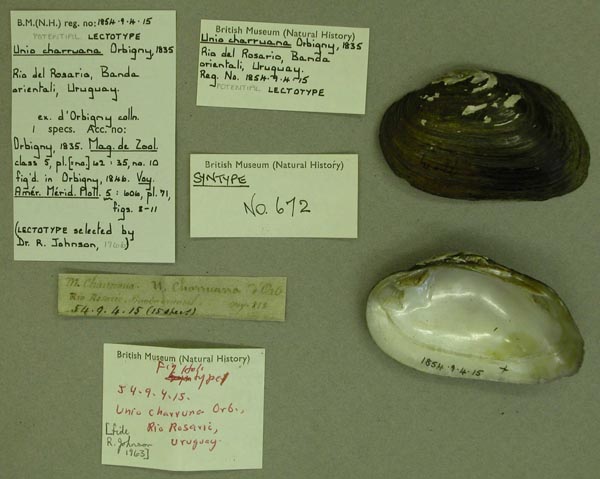 B.M.(N.H.) reg. no: 1854·9·4·15
POTENTIAL LECTOTYPE
Unio charruana Orbigny, 1835
Rio del Rosario, Banda
orientali, Uruguay.
ex. d'Orbigny colln.
1 specs. Acc. no:
Orbigny, 1835. Mag. de Zool.
class 5, pl.[&no.] 62 : 35, no. 10
fig'd. in Orbigny, 1846. Voy.
Amér. Mérid. Moll. 5 : 606, pl. 71,
figs. 8-11
(LECTOTYPE selected by
Dr. R. Johnson,
British Museum (Natural History)
Unio charruana Orbigny, 1835
Rio del Rosario, Banda
orientali, Uruguay.
Reg. No. 1854·9·4·15
POTENTIAL LECTOTYPE
British Museum (Natural History)
SYNTYPE
No. 672
M. Charruana. U. Charruana d'Orb
Rio Rosario
54.9.4.15 (15 spec.)
British Museum (Natural History)
Fig
type
54.9.4.15.
Unio charruna Orb.,
[fide Rio Rosario,
R. Johnson Uruguay.
1963]
1854·9·4·15